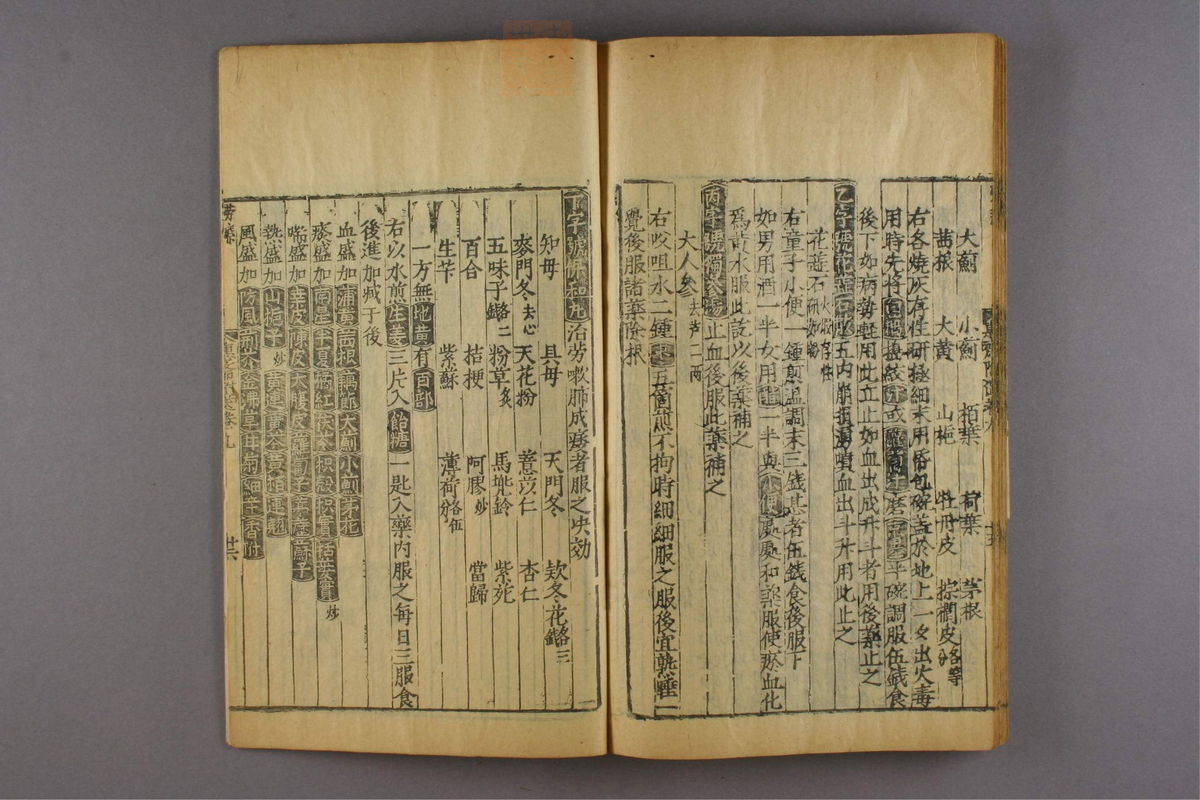 大薊 小薊 栢葉 荷葉 茅根
茜根 大黄 山梔 牡丹皮 棕櫚皮各等分
右各燒灰存性研極細末用帋包碗盖於地上一夂出火毒
用時先將 藕 汁或 蘿蔔汁 磨 京墨 半碗調服伍錢食
後下如病勢輕用此立止如血出成升斗者用後藥止之
乙字號花蕊石散 五内崩損湧噴血出斗升用此止之
花蕊石火煅存性研如粉
右童子小便一鍾煎温調末三錢甚者伍錢食後服下
如男用酒一半女用醋一半與 小便 處處和藥服使瘀血化
爲黄水服此訖以後藥補之
丙字號獨參湯 止血後服此藥補之
大人參去芦二兩
右㕮咀水二鍾 棗 五箇煎不拘時細細服之服後宜熟睡一
覺後服諸藥除根
丁字號保和丸 治劳嗽肺成痿者服之决効
知母 具母 天門冬 欵冬花各三錢
麥門冬去心 天花粉 薏苡仁 杏仁
五味子各二錢 粉草炙 馬兠鈴 紫菀
百合 桔梗 阿膠炒 當歸
生苄 紫蘇 薄荷各伍分
一方無 地黄 有 百部
右以水煎 生姜 三片入 飴糖 一匙入藥内服之每日三服食
後進加减于後
血盛加 蒲黄 茜根 藕節 大薊 小薊 茅花
痰盛加 南星 半夏 橘紅 茯苓 枳殻 枳實 栝蔞實炒
喘盛加 陳皮 大腹皮 蘿蔔子 蘇子
熱盛加 山梔子炒 黄連 黄芩 黄栢 連翹
風盛加 防風 荆芥 菊 細辛 香附
卄六